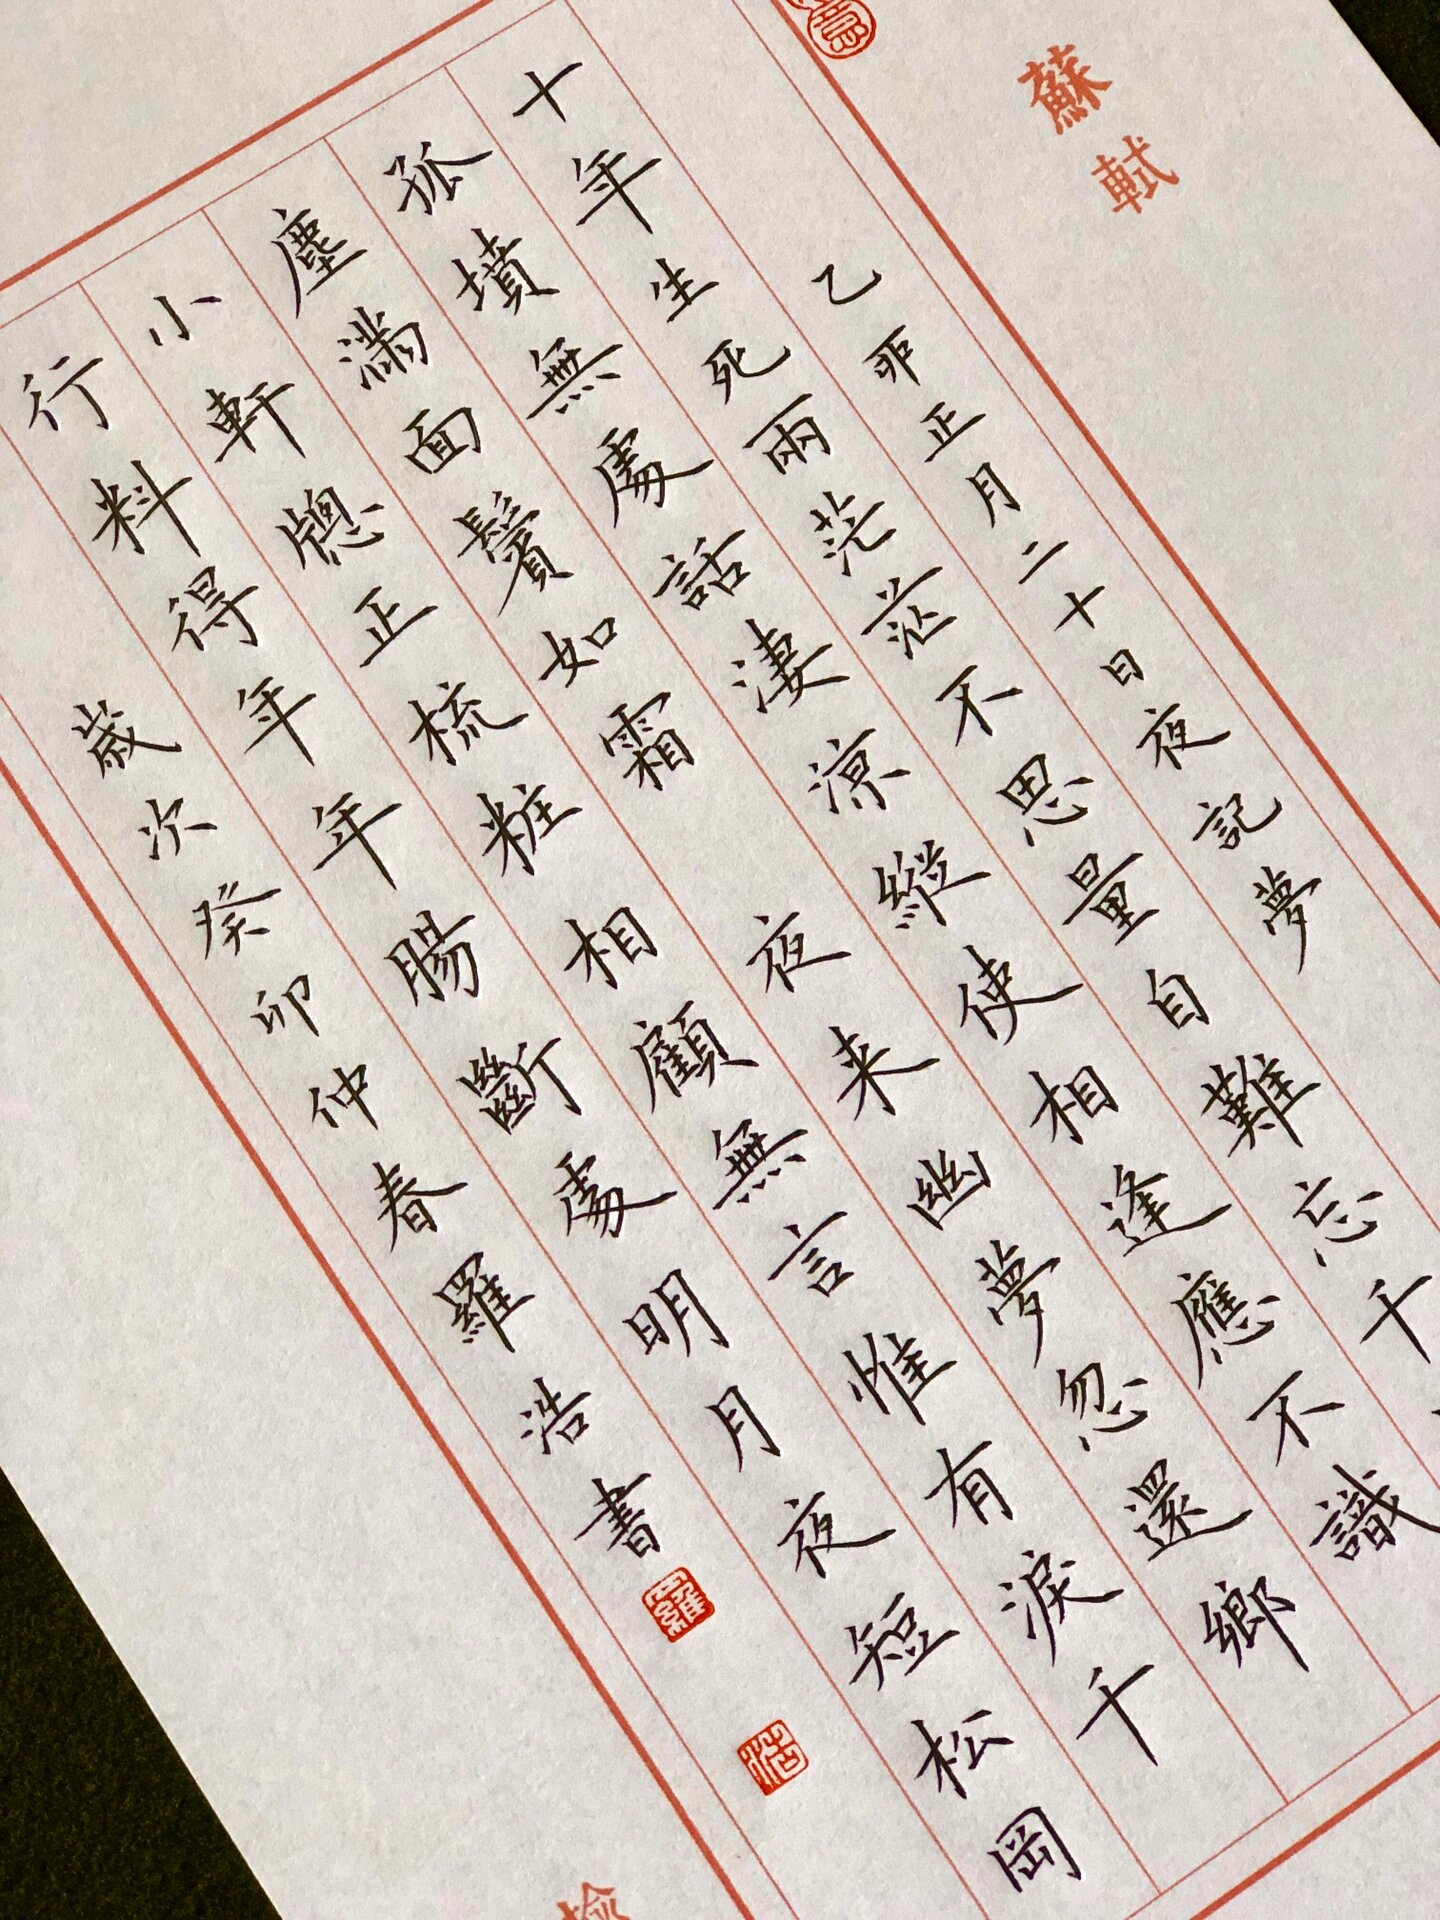 蘇軾
乙卯正月二十日夜記夢
十年生死兩茫茫不思量自難忘千
孤墳無處話淒涼縱使相逢應不識
塵滿面鬢如霜 夜来幽夢忽還鄉
小軒牕正梳粧相顧無言惟有淚千
行料得年年腸斷處明月夜短松岡
歲次癸卯仲春羅浩書
羅
浩